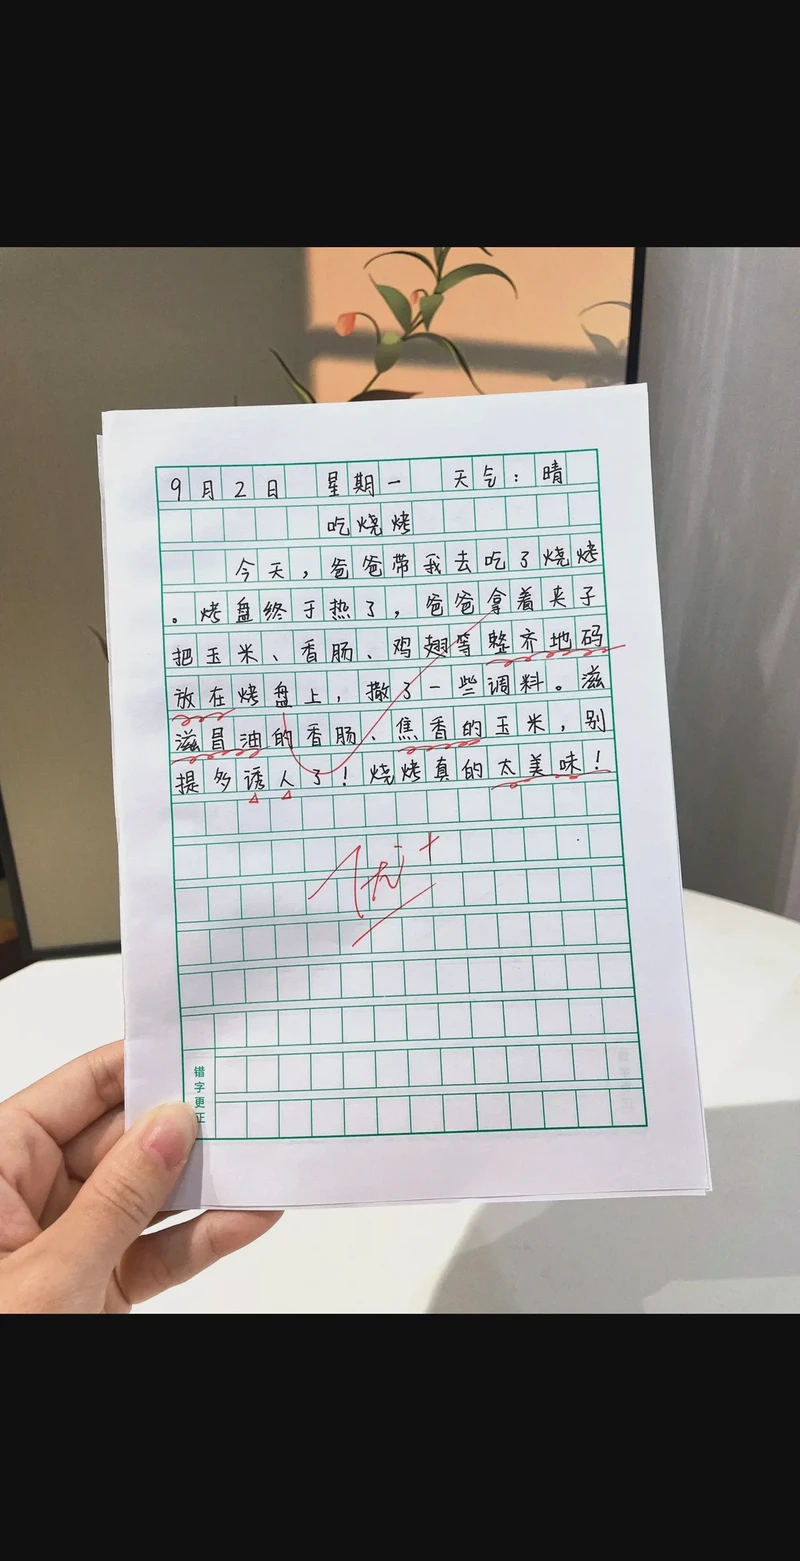 9月2日 星期一 天气:晴
吃烧烤
今天,爸爸带我去吃了烧烤
。烤盘终于热了,爸爸拿着夹子
把玉米、香肠、鸡翅等整齐地码
放在烤盘上,撒了一些调料。滋
滋冒油的香肠、焦香的玉米,别
提多诱人了!烧烤真的太美味!
优+
错字更正